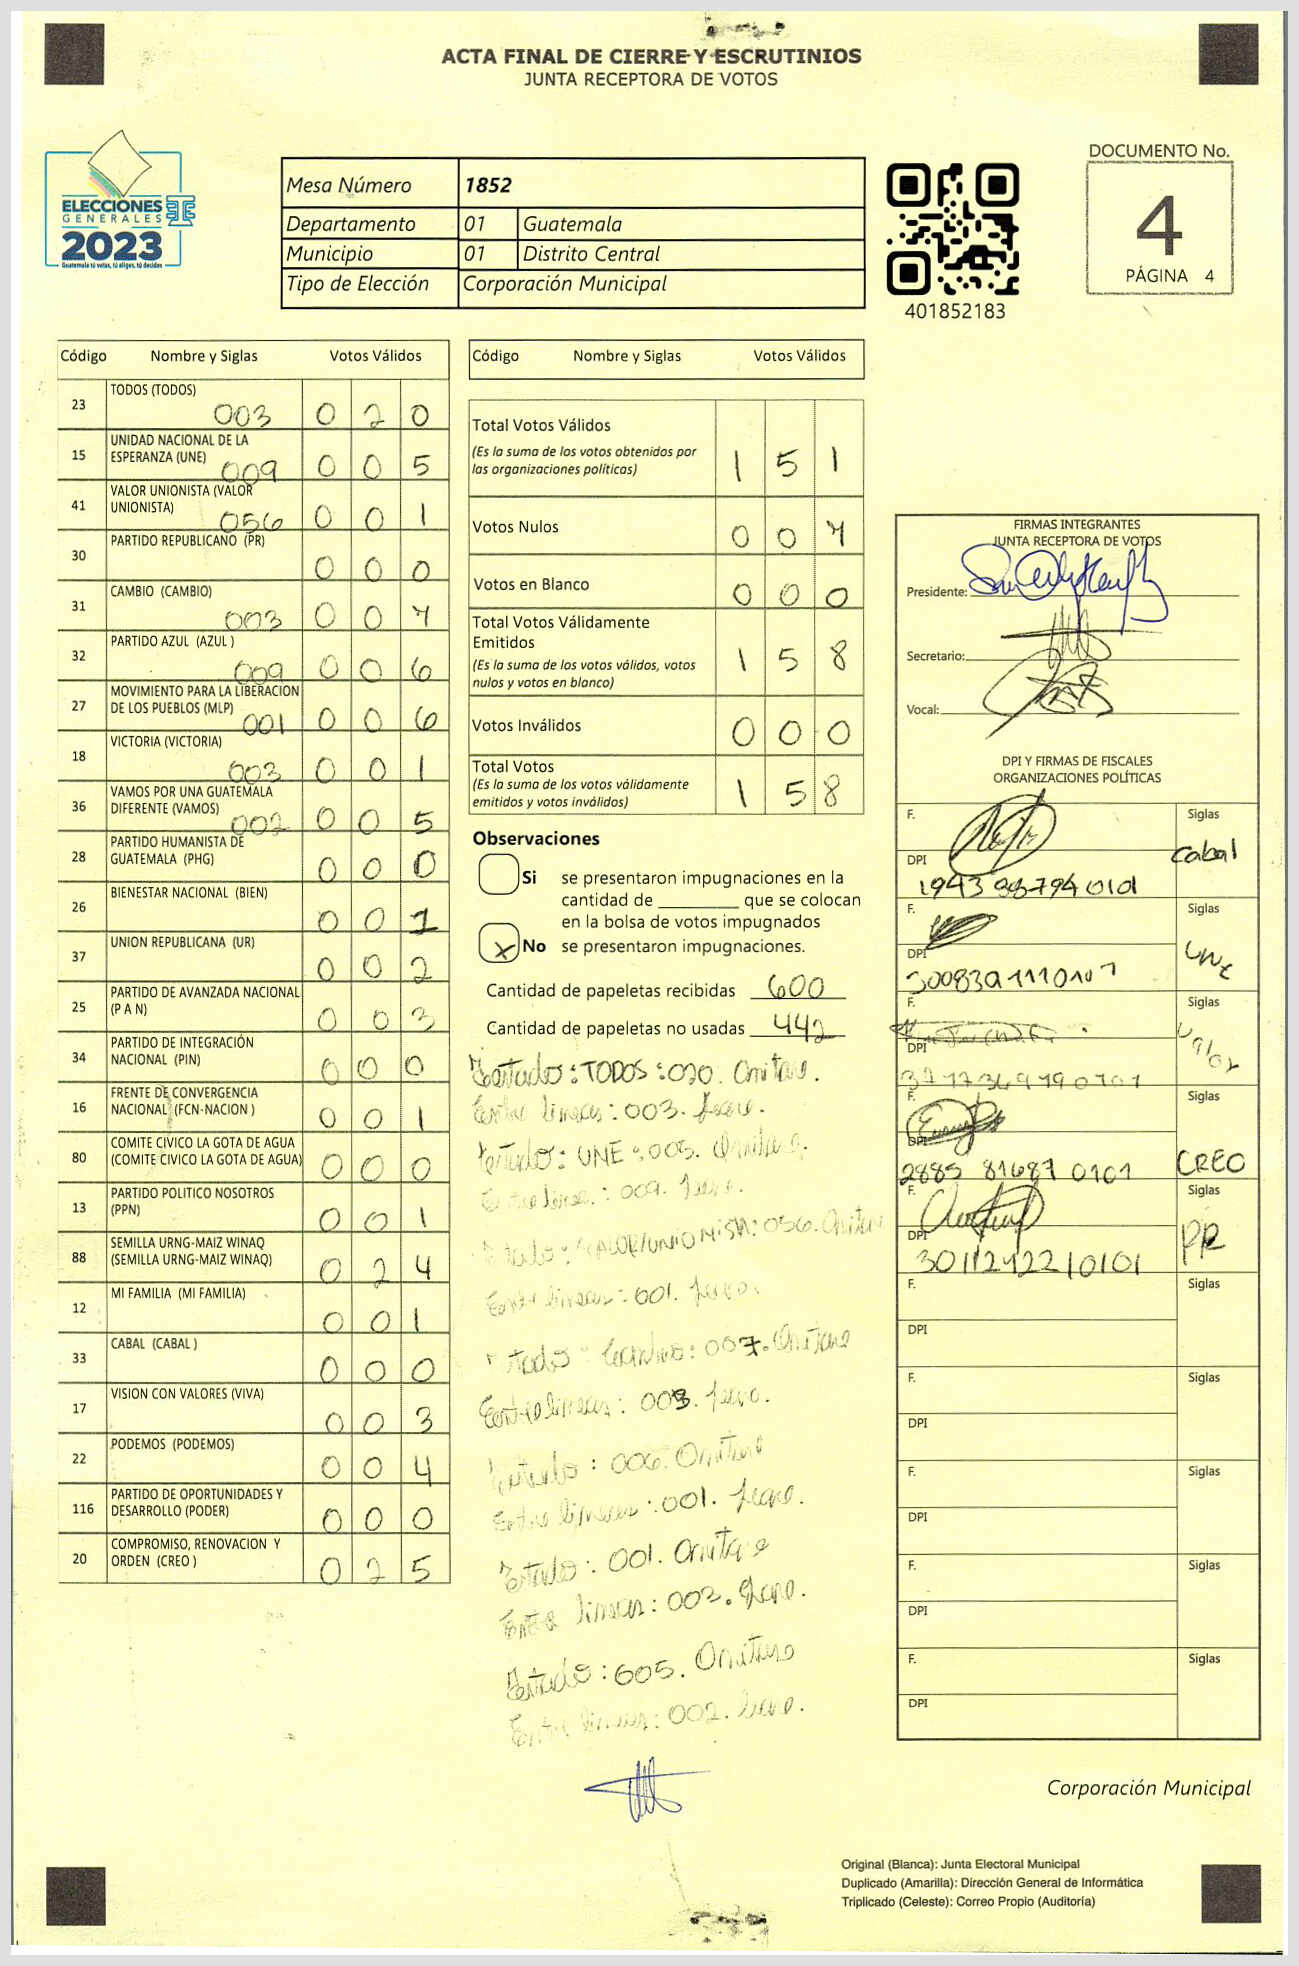 ACTA FINAL DE CIERRE Y ESCRUTINIOS
JUNTA RECEPTORA DE VOTOS
ELECCIONES
GENERALES
2023
Guatemala tú votas, tú eliges, tú decides
Mesa Número 1852
Departamento 01 Guatemala
Municipio 01 Distrito Central
Tipo de Elección Corporación Municipal
401852183
DOCUMENTO No.
4
PÁGINA 4
Código Nombre y Siglas Votos Válidos
23 TODOS (TODOS) 003 0 2 0
15 UNIDAD NACIONAL DE LA
ESPERANZA (UNE) 009 0 0 5
41 VALOR UNIONISTA (VALOR
UNIONISTA) 056 0 0 1
30 PARTIDO REPUBLICANO (PR) 0 0 0
31 CAMBIO (CAMBIO) 003 0 0 7
32 PARTIDO AZUL (AZUL ) 009 0 0 6
27 MOVIMIENTO PARA LA LIBERACION
DE LOS PUEBLOS (MLP) 001 0 0 6
18 VICTORIA (VICTORIA) 003 0 0 1
36 VAMOS POR UNA GUATEMALA
DIFERENTE (VAMOS) 002 0 0 5
28 PARTIDO HUMANISTA DE
GUATEMALA (PHG) 0 0 0
26 BIENESTAR NACIONAL (BIEN) 0 0 1
37 UNION REPUBLICANA (UR) 0 0 2
25 PARTIDO DE AVANZADA NACIONAL
(P A N) 0 0 3
34 PARTIDO DE INTEGRACIÓN
NACIONAL (PIN) 0 0 0
16 FRENTE DE CONVERGENCIA
NACIONAL (FCN-NACION ) 0 0 1
80 COMITE CIVICO LA GOTA DE AGUA
(COMITE CIVICO LA GOTA DE AGUA) 0 0 0
13 PARTIDO POLITICO NOSOTROS
(PPN) 0 0 1
88 SEMILLA URNG-MAIZ WINAQ
(SEMILLA URNG-MAIZ WINAQ) 0 2 4
12 MI FAMILIA (MI FAMILIA) 0 0 1
33 CABAL (CABAL ) 0 0 0
17 VISION CON VALORES (VIVA) 0 0 3
22 PODEMOS (PODEMOS) 0 0 4
116 PARTIDO DE OPORTUNIDADES Y
DESARROLLO (PODER) 0 0 0
20 COMPROMISO, RENOVACION Y
ORDEN (CREO ) 0 2 5
Código Nombre y Siglas Votos Válidos
Total Votos Válidos
(Es la suma de los votos obtenidos por
las organizaciones políticas) 1 5 1
Votos Nulos 0 0 7
Votos en Blanco 0 0 0
Total Votos Válidamente
Emitidos
(Es la suma de los votos válidos, votos
nulos y votos en blanco) 1 5 8
Votos Inválidos 0 0 0
Total Votos
(Es la suma de los votos válidamente
emitidos y votos inválidos) 1 5 8
Observaciones
Si se presentaron impugnaciones en la
cantidad de ________ que se colocan
en la bolsa de votos impugnados
X No se presentaron impugnaciones.
Cantidad de papeletas recibidas 600
Cantidad de papeletas no usadas 442
Testados: TODOS: 020. Omitase.
Entre lineas: 003. Lease.
Testado: UNE: 005. Omitase.
Entre linea: 009. Lease.
Testado: VALOR/UNIONISTA: 056. Omitase
Entre lineas: 001. Lease.
Testado: 007. Omitase
Entre lineas: 003. Lease.
Testado: 006. Omitase
Entre lineas: 001. Lease.
Testado: 001. Omitase
Entre lineas: 003. Lease.
Testado: 005. Omitase
Entre lineas: 002. Lease.
FIRMAS INTEGRANTES
JUNTA RECEPTORA DE VOTOS
Presidente:
Secretario:
Vocal:
DPI Y FIRMAS DE FISCALES
ORGANIZACIONES POLÍTICAS
F. Siglas
Cabal
DPI
F. Siglas
UNE
DPI
F. Siglas
DPI
F. Siglas
CREO
DPI
2885 81687 0101
F. Siglas
PR
DPI
F. Siglas
DPI
F. Siglas
DPI
F. Siglas
DPI
F. Siglas
DPI
F. Siglas
DPI
Corporación Municipal
Original (Blanca): Junta Electoral Municipal
Duplicado (Amarilla): Dirección General de Informática
Triplicado (Celeste): Correo Propio (Auditoría)